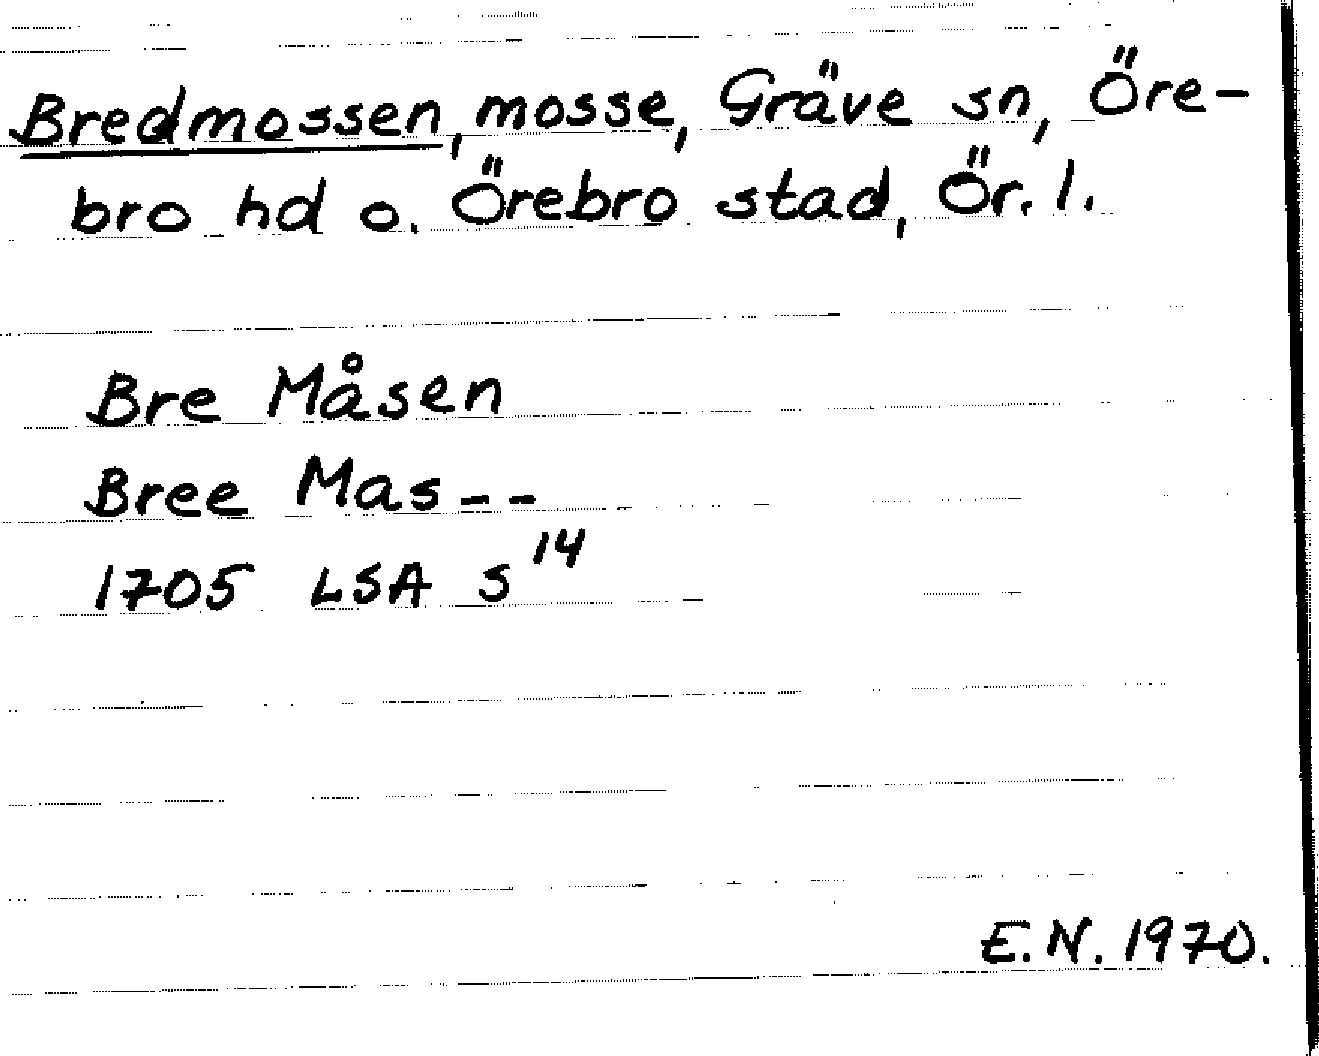 Bredmossen, mosse, Gräve sn, Öre-
bro hd o. Örebro stad, Ör. l.
Bre Måsen
Bree Mas--
1705 LSA S 14
E.N. 1970.